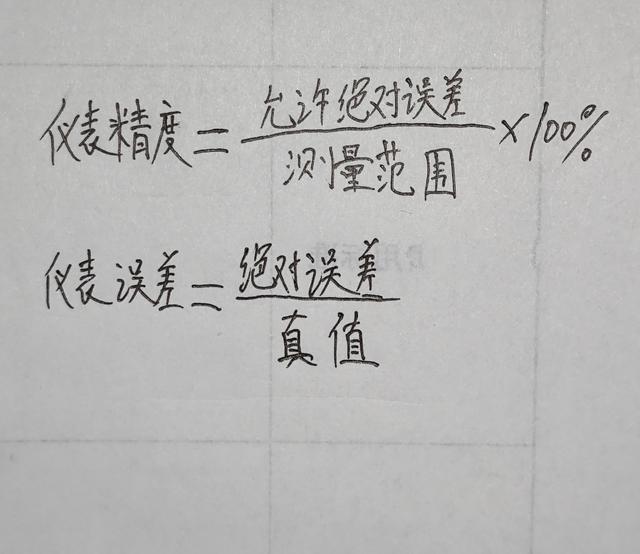 仪表精度=允许绝对误差/测量范围×100%
仪表误差=绝对误差/真值